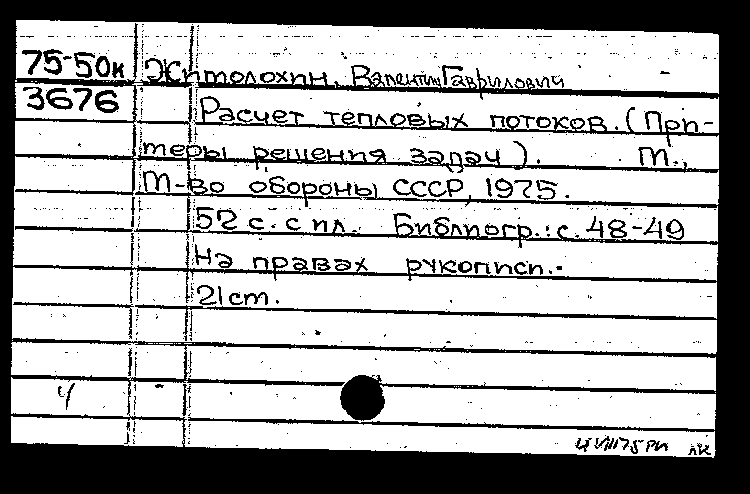 75-50к Житолохин, Валентин Гаврилович
3676 Расчет тепловых потоков. (При-
меры решения задач). М.,
М-во обороны СССР, 1975.
52 с. с ил. Библиогр.: с. 48-49
На правах рукописи.
21 cm.
4